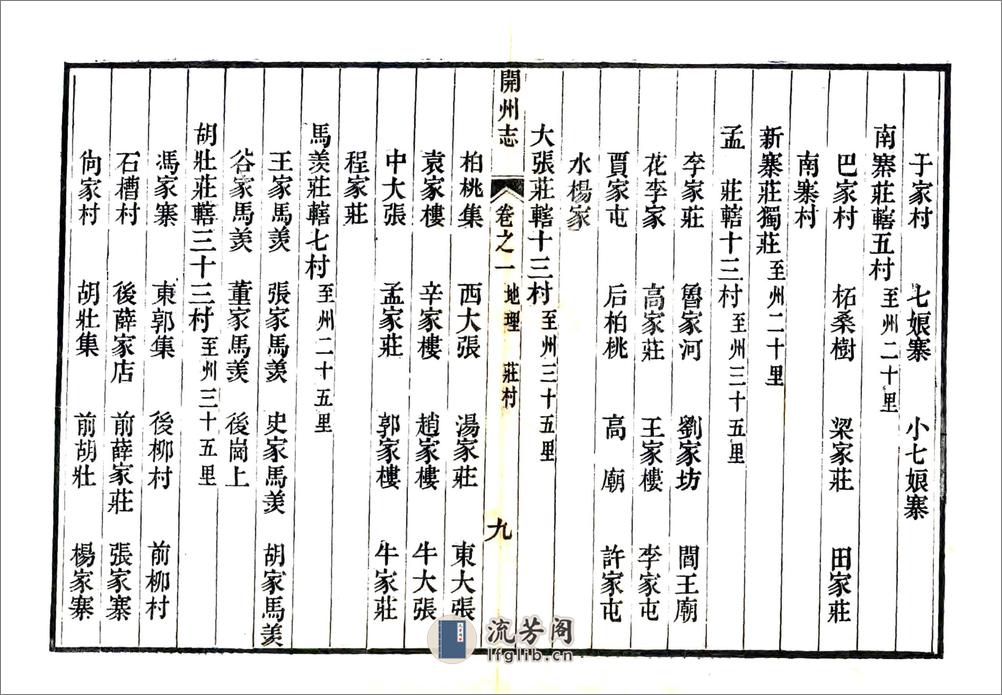 于家村　七娘寨　小七娘寨
南寨莊轄五村至州二十里
巴家村　柘桑樹　梁家莊　田家莊
南寨村
新寨莊獨莊至州二十里
孟　莊轄十三村至州三十五里
李家莊　魯家河　劉家坊　閻王廟
花李家　高家莊　王家樓　李家屯
賈家屯　后柏桃　高　廟　許家屯
水楊家
大張莊轄十三村至州三十五里
開州志　卷之一　地理　莊村　九
柏桃集　西大張　湯家莊　東大張
袁家樓　辛家樓　趙家樓　牛大張
中大張　孟家莊　郭家樓　牛家莊
程家莊
馬羨莊轄七村至州二十五里
王家馬羨　張家馬羨　史家馬羨　胡家馬羨
谷家馬羨　董家馬羨　後崗上
胡壯莊轄三十三村至州三十五里
馮家寨　東郭集　後柳村　前柳村
石槽村　後薛家店　前薛家莊　張家寨
尙家村　胡壯集　前胡壯　楊家寨
流芳阁
lfglib.cn